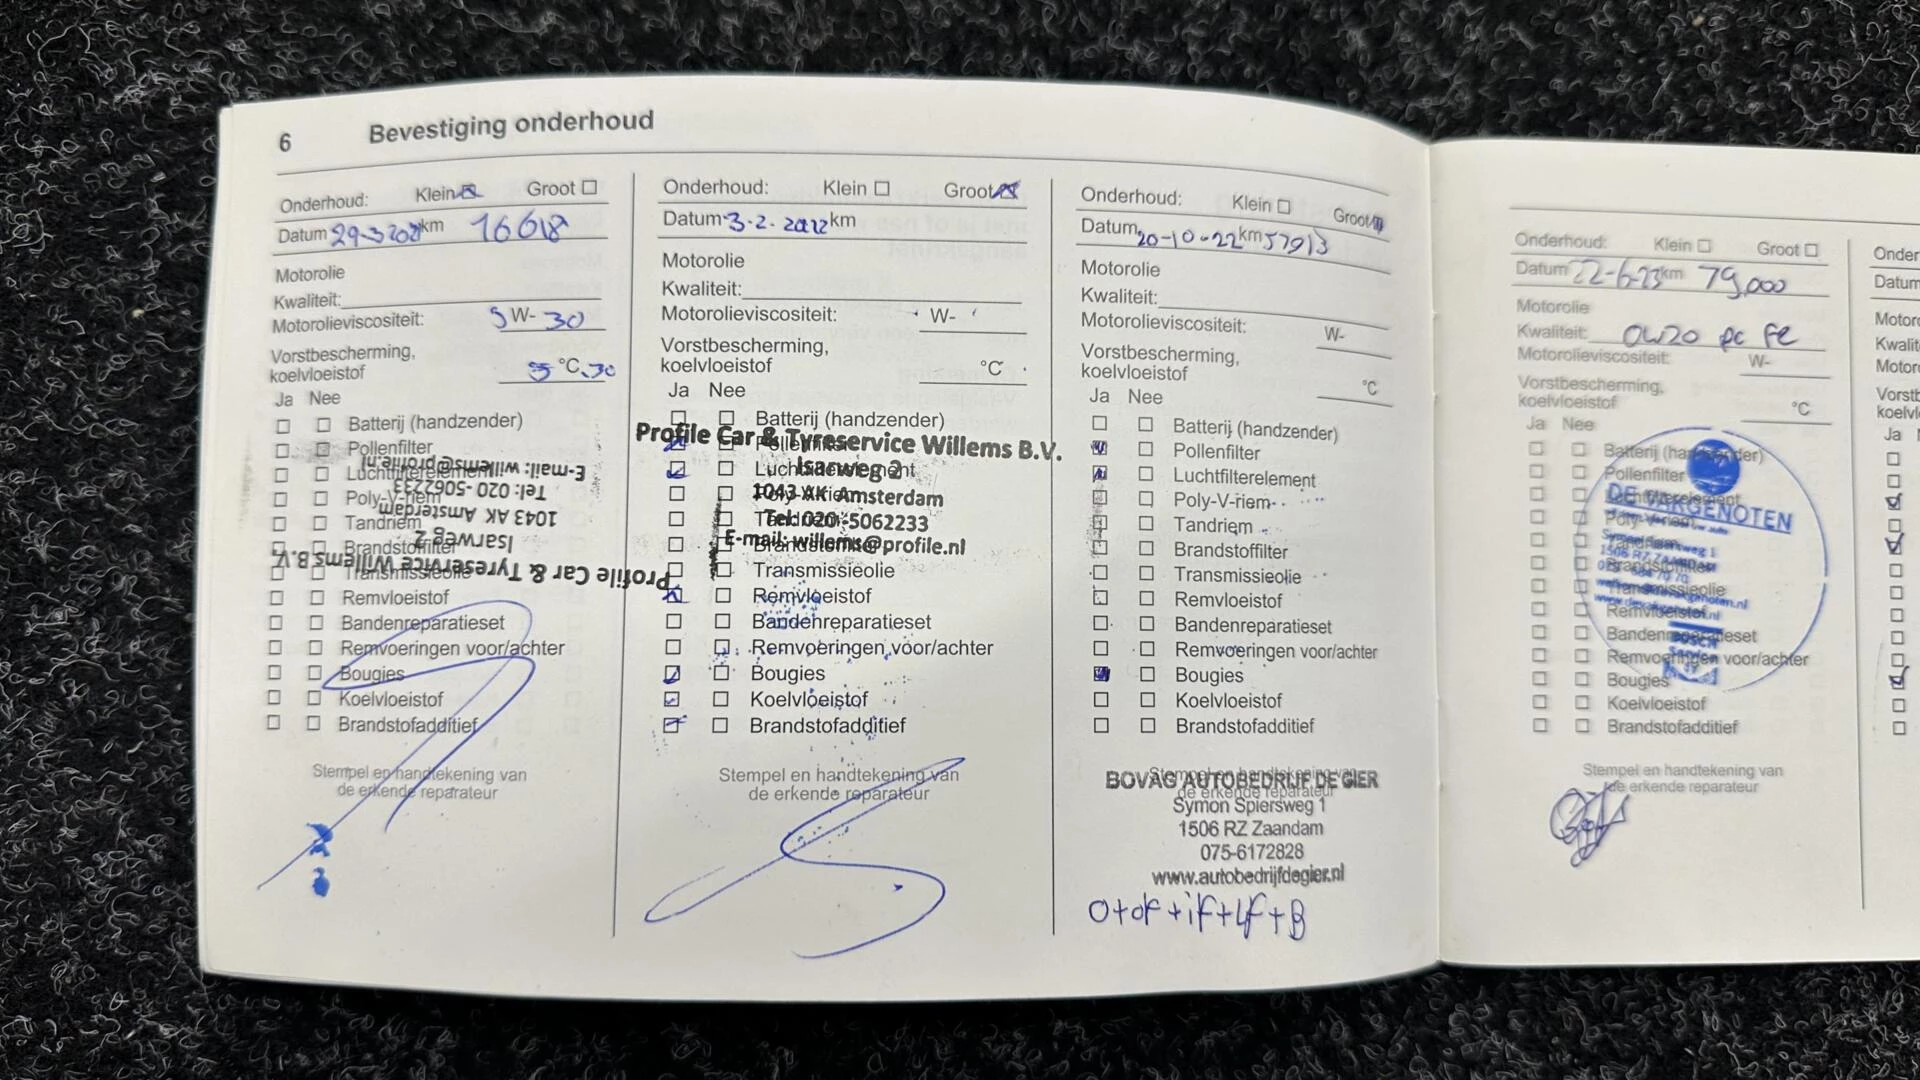 6 Bevestiging onderhoud
Onderhoud: Klein Groot
Datum 29-3 2021 km 16618
Motorolie
Kwaliteit:
Motorolieviscositeit: 5 W- 30
Vorstbescherming,
koelvloeistof °C 30
Ja Nee
Batterij (handzender)
Pollenfilter
Luchtfilterelement
Poly-V-riem
Tandriem
Brandstoffilter
Transmissieolie
Remvloeistof
Bandenreparatieset
Remvoeringen voor/achter
Bougies
Koelvloeistof
Brandstofadditief
Profile Car & Tyreservice Willems B.V.
Isarweg 2
1043 AK Amsterdam
Tel: 020-5062233
E-mail: willems@profile.nl
Stempel en handtekening van
de erkende reparateur
Onderhoud: Klein Groot
Datum 3-2-2022 km
Motorolie
Kwaliteit:
Motorolieviscositeit: W-
Vorstbescherming,
koelvloeistof °C
Ja Nee
Batterij (handzender)
Pollenfilter
Luchtfilterelement
Poly-V-riem
Tandriem
Brandstoffilter
Transmissieolie
Remvloeistof
Bandenreparatieset
Remvoeringen voor/achter
Bougies
Koelvloeistof
Brandstofadditief
Profile Car & Tyreservice Willems B.V.
Isarweg 2
1043 AK Amsterdam
Tel: 020-5062233
E-mail: willems@profile.nl
Stempel en handtekening van
de erkende reparateur
Onderhoud: Klein Groot
Datum 20-10-22 km 57913
Motorolie
Kwaliteit:
Motorolieviscositeit: W-
Vorstbescherming,
koelvloeistof °C
Ja Nee
Batterij (handzender)
Pollenfilter
Luchtfilterelement
Poly-V-riem
Tandriem
Brandstoffilter
Transmissieolie
Remvloeistof
Bandenreparatieset
Remvoeringen voor/achter
Bougies
Koelvloeistof
Brandstofadditief
Stempel en handtekening van
de erkende reparateur
BOVAG AUTOBEDRIJF DE GIER
Symon Spiersweg 1
1506 RZ Zaandam
075-6172828
www.autobedrijfdegier.nl
O+of+if+Lf+B
Onderhoud: Klein Groot
Datum 22-6-23 km 79,000
Motorolie
Kwaliteit: 0W20 pc Fe
Motorolieviscositeit: W-
Vorstbescherming,
koelvloeistof °C
Ja Nee
Batterij (handzender)
Pollenfilter
Luchtfilterelement
Poly-V-riem
Tandriem
Brandstoffilter
Transmissieolie
Remvloeistof
Bandenreparatieset
Remvoeringen voor/achter
Bougies
Koelvloeistof
Brandstofadditief
DE VAKGENOTEN
1506 RZ Zaandam
www.devakgenoten.nl
BOSCH
Stempel en handtekening van
de erkende reparateur
Onder
Datum
Motoro
Kwalit
Motor
Vorstb
koelvl
Ja